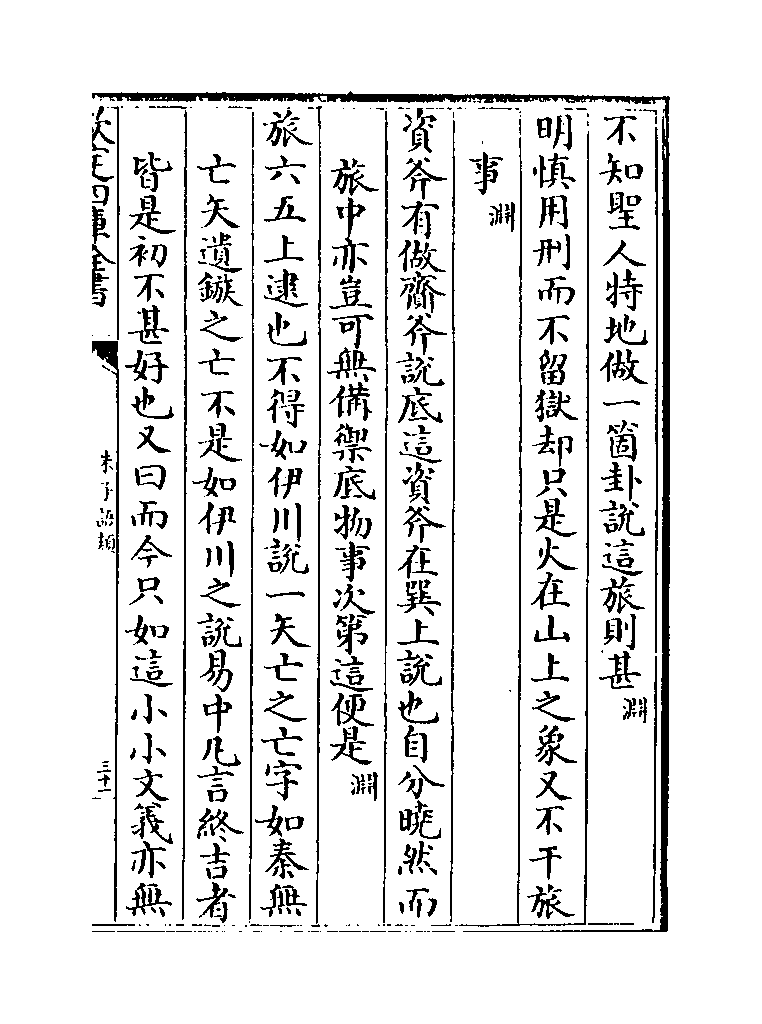 不知聖人特地做一箇卦說這旅則甚淵
明慎用刑而不留獄却只是火在山上之象又不干旅
事淵
資斧有做齋斧說底這資斧在巽上說也自分曉然而
旅中亦豈可無備禦底物事次第這便是淵
旅六五上逮也不得如伊川說一矢亡之亡字如秦無
亡矢遺鏃之亡不是如伊川之說易中凡言終吉者
皆是初不甚好也又曰而今只如這小小文義亦無
欽定四庫全書
朱子語類
三十一